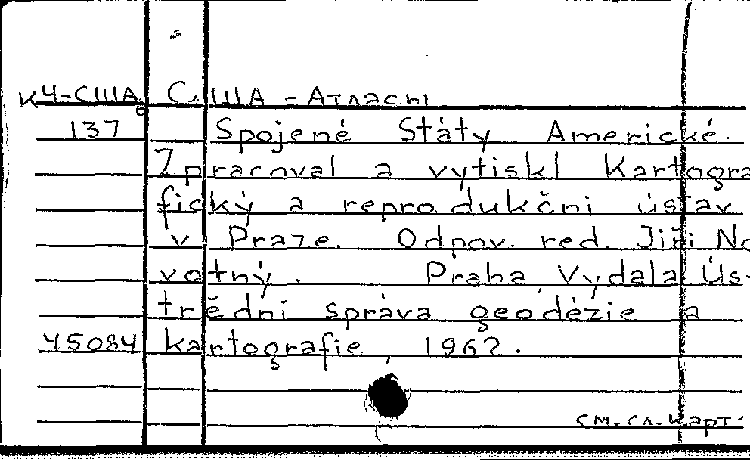 К4-США США - Атласы
137 Spojené Státy Americké.
Zpracoval a vytiskl Kartogra
fický a reprodukčni ústav
v Praze. Odpov. red. Jiři No
votný. Praha, Vydala Ús
trědni správa geodézie a
45084 kartografie, 1962.
см. сл. карт.